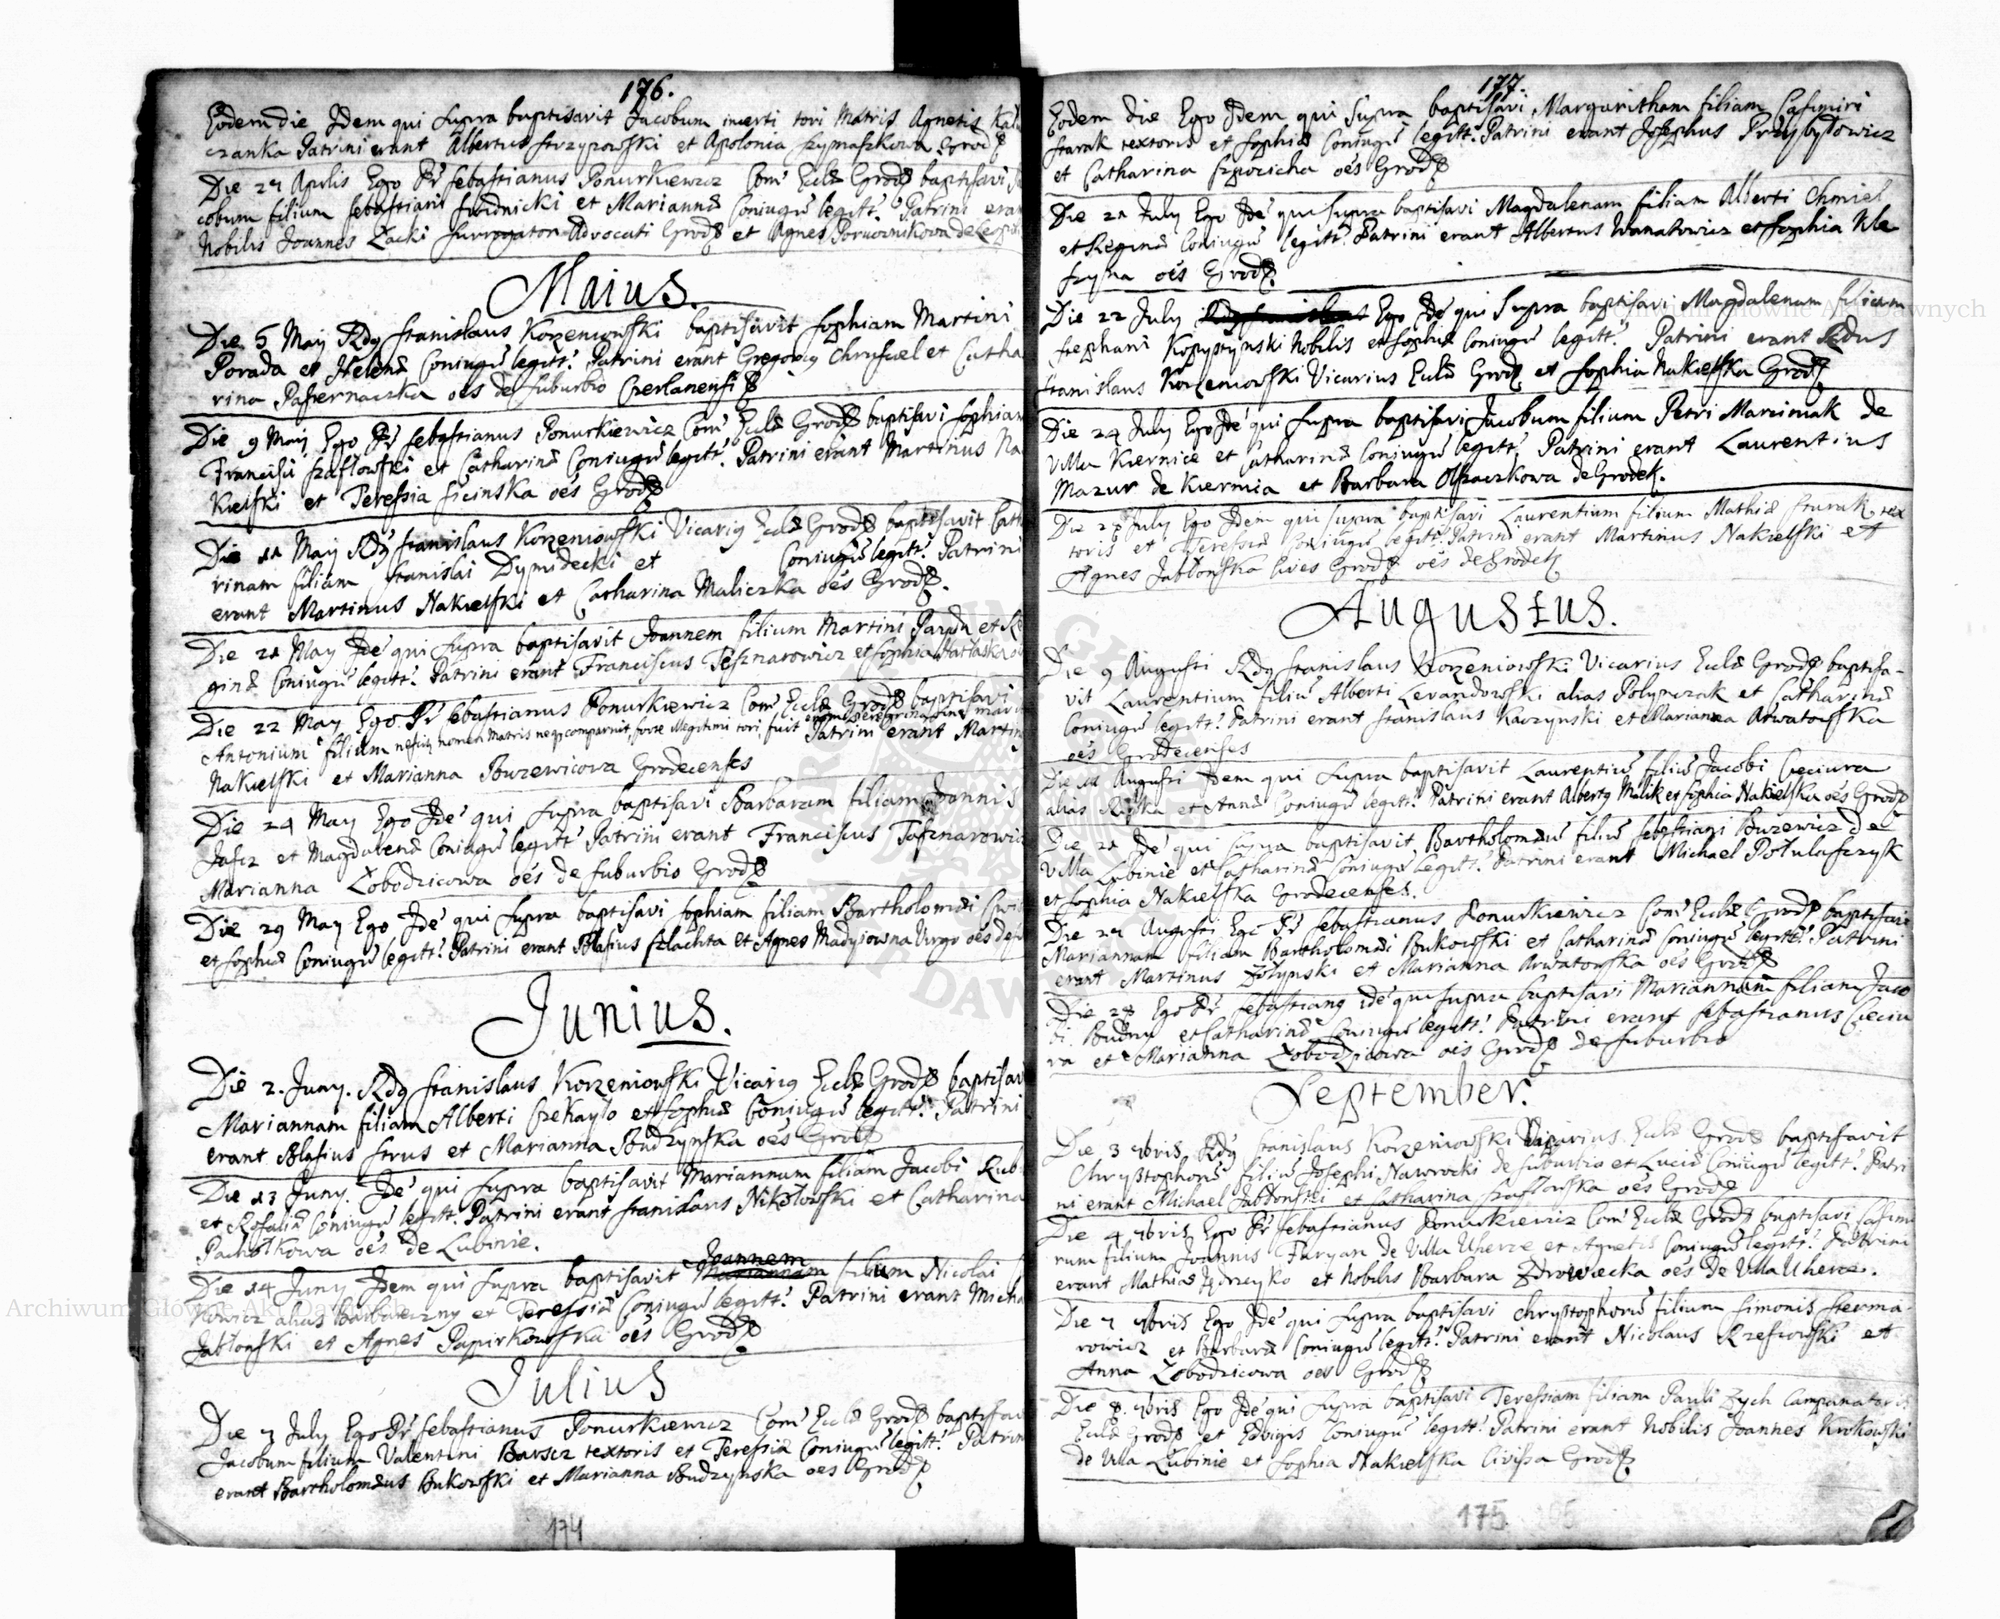 176.
Eodem die Idem qui supra baptisavit Jacobum incerti tori Matris Agnetis
czanka Patrini erant Albertus Strzyzowski et Apolonia Szymaszkowa Grod
Die 27 Aprilis Ego Pr Sebastianus Ponurkiewicz Com Eccl Grod baptisavi
cobum filium Sebastiani Swidnicki et Mariannæ Coniugu legitt. Patrini eran
Nobilis Joannes Zacki Surrogator Advocati Grod et Agnes
Maius.
Die 5 May Rdq Stanislaus Korzeniowski baptisavit Sophiam Martini
Porada et Helenæ Coniugu legitt. Patrini erant Gregorius Chrysciel et Catha
rina Pasternaczka oes de suburbio Czerlanensi
Die 9 May Ego Pr Sebastianus Ponurkiewicz Com Eccl Grod baptisavi Sophiam
Francisci Szaflowski et Catharinæ Coniugu legitt. Patrini erant Martinus Na
kielski et Teressia Sicinska oes Grod
Die 11 May Rdq Stanislaus Korzeniowski Vicariq Eccl Grod baptisavit Catha
rinam filiam Stanislai Dymidecki et Coniugu legitt. Patrini
erant Martinus Nakielski et Catharina Maliczka oes Grod.
Die 21 May Ide qui supra baptisavit Joannem filium Martini et Re
ginæ Coniugu legitt. Patrini erant Franciscus Tesznarowicz et Sophia
Die 22 May Ego Pr Sebastianus Ponurkiewicz Com Eccl Grod baptisavi
Antonium filium nescitq nomen Matris neq comparuit, forte illegitimi tori, fuit Patrini erant Martin
Nakielski et Marianna Buzewicowa Grodecenses
Die 24 May Ego Ide qui supra baptisavi Barbaram filiam Joannis
Jascz et Magdalenæ Coniugu legitt Patrini erant Franciscus Tesznarowicz
Marianna Zobodzicowa oes de suburbio Grod
Die 29 May Ego Ide qui supra baptisavi Sophiam filiam Bartholomæi
et Sophiæ Coniugu legitt. Patrini erant Blasius Szlachta et Agnes Madyiowna Virgo oes de
Junius.
Die 2. Juny. Rdq Stanislaus Korzeniowski Vicariq Eccl Grod baptisav
Mariannam filiam Alberti Czekaylo et Sophiæ Coniugu legitt. Patrini
erant Blasius Strus et Marianna Budzynska oes Grod
Die 13 Juny. Ide qui supra baptisavit Mariannam filiam Jacobi Rub
et Rosaliæ Coniugu legitt. Patrini erant Stanislaus Nikolowski et Catharina
Pacholkowa oes de Lubinie.
Die 14 Juny Idem qui supra baptisavit Mariannam Joannem filium Nicolai
kowicz alias et Teressiæ Coniugu legitt. Patrini erant Micha
Jablonski et Agnes Papirkowska oes Grod
Julius
Die 7 July Ego Pr Sebastianus Ponurkiewicz Com Eccl Grod baptisavi
Jacobum filium Valentini Barscz textoris et Teressiæ Coniugu legitt. Patrin
erant Bartholomæus Bukowski et Marianna Budzynska oes Grod
174
177.
Eodem die Ego Idem qui supra baptisavi Margaritham filiam Casimiri
Starak textoris et Sophiæ Coniugu legitt. Patrini erant Josephus Przybyłowicz
et Catharina oes Grod
Die 21 July Ego Ide qui supra baptisavi Magdalenam filiam Alberti Chmiel
et Reginæ Coniugu legitt. Patrini erant Albertus Wanatowicz et Sophia Kle
szyna oes Grod.
Die 22 July Ego Ide qui supra baptisavi Magdalenam filiam
Stephani Kopystynski Nobilis et Sophiæ Coniugu legitt. Patrini erant Rdus
Stanislaus Korzeniowski Vicarius Eccl Grod et Sophia Nakielska Grod
Die 24 July Ego Ide qui supra baptisavi Jacobum filium Petri Marciniak de
Villa Kiernice et Catharinæ Coniugu legitt. Patrini erant Laurentius
Mazur de Kiernica et Barbara Olszaczkowa de Grodek.
Die 28 July Ego Idem qui supra baptisavi Laurentium filium Mathiæ Starak tex
toris et Teressiæ Coniugu legitt. Patrini erant Martinus Nakielski et
Agnes Jablonska Cives Grod oes de Grodek
Augustus.
Die 9 Augusti Rdq Stanislaus Korzeniowski Vicarius Eccl Grod baptisa-
vit Laurentium filiu Alberti Levandowski alias Polynczak et Catharinæ
Coniugu legitt. Patrini erant Stanislaus Kaczynski et Marianna Arwatowska
oes Grodecenses
Die 11 Augusti Idem qui supra baptisavit Laurentiu filiu Jacobi Cieciura
alias et Annæ Coniugu legitt. Patrini erant Albertq Malik et Sophia Nakielska oes Grod
Die 21 Ide qui supra baptisavit Bartholomæu filiu Sebastiani Buzewicz de
Villa Lubinie et Catharinæ Coniugu legitt. Patrini erant Michael Potulaszczyk
et Sophia Nakielska Grodecenses.
Die 27 Augusti Ego Pr Sebastianus Ponurkiewicz Com Eccl Grod baptisavi
Mariannam filiam Bartholomæi Bukowski et Catharinæ Coniugu legitt. Patrini
erant Martinus Zolynski et Marianna Arwatowska oes Grod
Die 28 Ego Pr Sebastianq ide qui supra baptisavi Mariannam filiam Jaco
bi Budny et Catharinæ Coniugu legitt. Patrini erant Sebastianus Cieciu
ra et Marianna Zobodzicowa oes Grod de suburbio
September.
Die 3 7bris Rdq Stanislaus Korzeniowski Vicarius Eccl Grod baptisavit
Chrystophoru filiu Josephi Nawrocki de suburbio et Luciæ Coniugu legitt. Patri
ni erant Michael Jablonski et Catharina Szaflarska oes Grod
Die 4 7bris Ego Pr Sebastianus Ponurkiewicz Com Eccl Grod baptisavi Casimi
rum filium Joannis Furyan de Villa Uherce et Agnetis Coniugu legitt. Patrini
erant Mathias Jędrzeyko et Nobilis Barbara Zdrowiecka oes de Villa Uherce.
Die 7 7bris Ego Ide qui supra baptisavi Chrystophoru filium Simonis Sterma-
rowicz et Barbaræ Coniugu legitt. Patrini erant Nicolaus Rzeszowski et
Anna Zobodzicowa oes Grod
Die 8. 7bris Ego Ide qui supra baptisavi Teressiam filiam Pauli Zych Campanatoris
Eccl Grod et Edvigis Coniugu legitt. Patrini erant Nobilis Joannes Krokowski
de Villa Lubinie et Sophia Nakielska Civissa Grod.
175
Archiwum Główne Akt Dawnych
Archiwum Główne Akt Dawnych